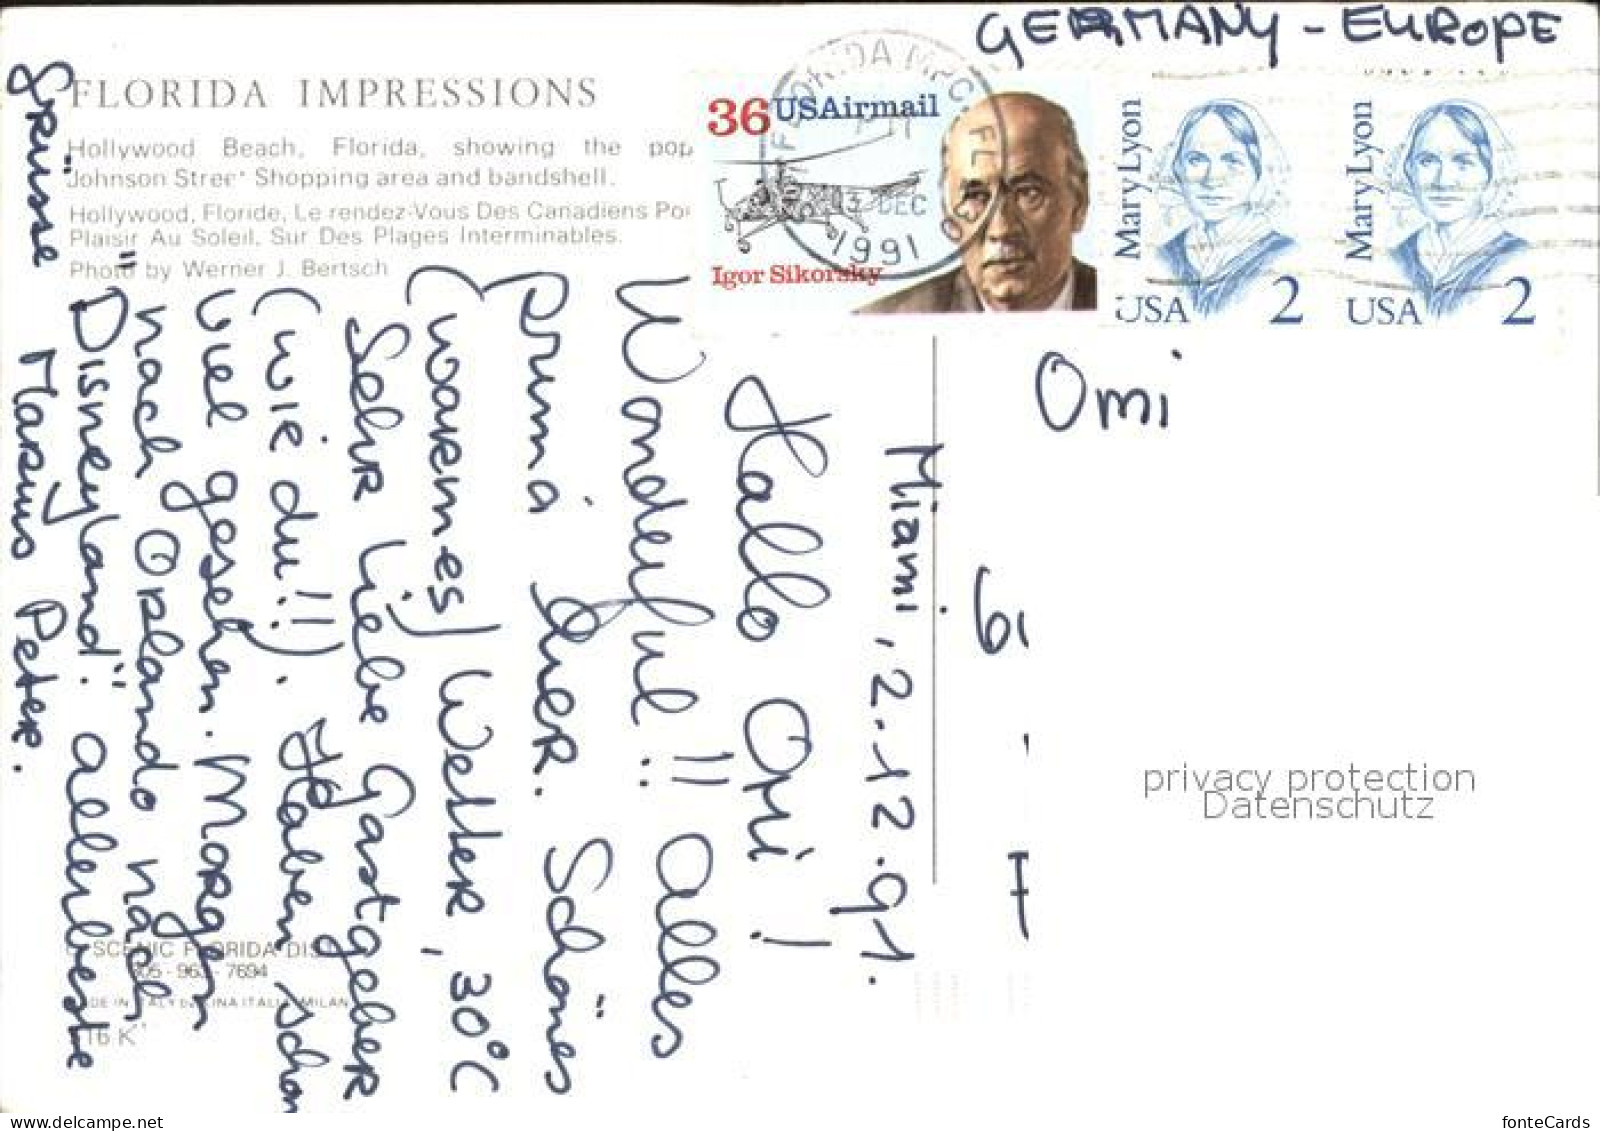 GERMANY - EUROPE
FLORIDA IMPRESSIONS
Hollywood Beach, Florida, showing the pop
Johnson Street Shopping area and bandshell.
Hollywood, Floride, Le rendez-Vous Des Canadiens Po
Plaisir Au Soleil, Sur Des Plages Interminables.
Photo by Werner J. Bertsch
36 USAirmail
Igor Sikorsky
3 DEC
1991
Mary Lyon
USA 2
Mary Lyon
USA 2
Omi
Miami, 2.12.91.
Hallo Omi!
Wonderful!! Alles
prima hier. Schönes
(warmes) Wetter, 30°C
Sehr liebe Gastgeber
(wie du!!). Haben schon
viel gesehen. Morgen
nach Orlando nach
"Disneyland". Allerbeste
Grüsse
Marius Peter.
SCENIC FLORIDA DIS
305-963-7694
MADE IN ITALY by
MILAN
316 K
privacy protection
Datenschutz
www.delcampe.net
fonteCards